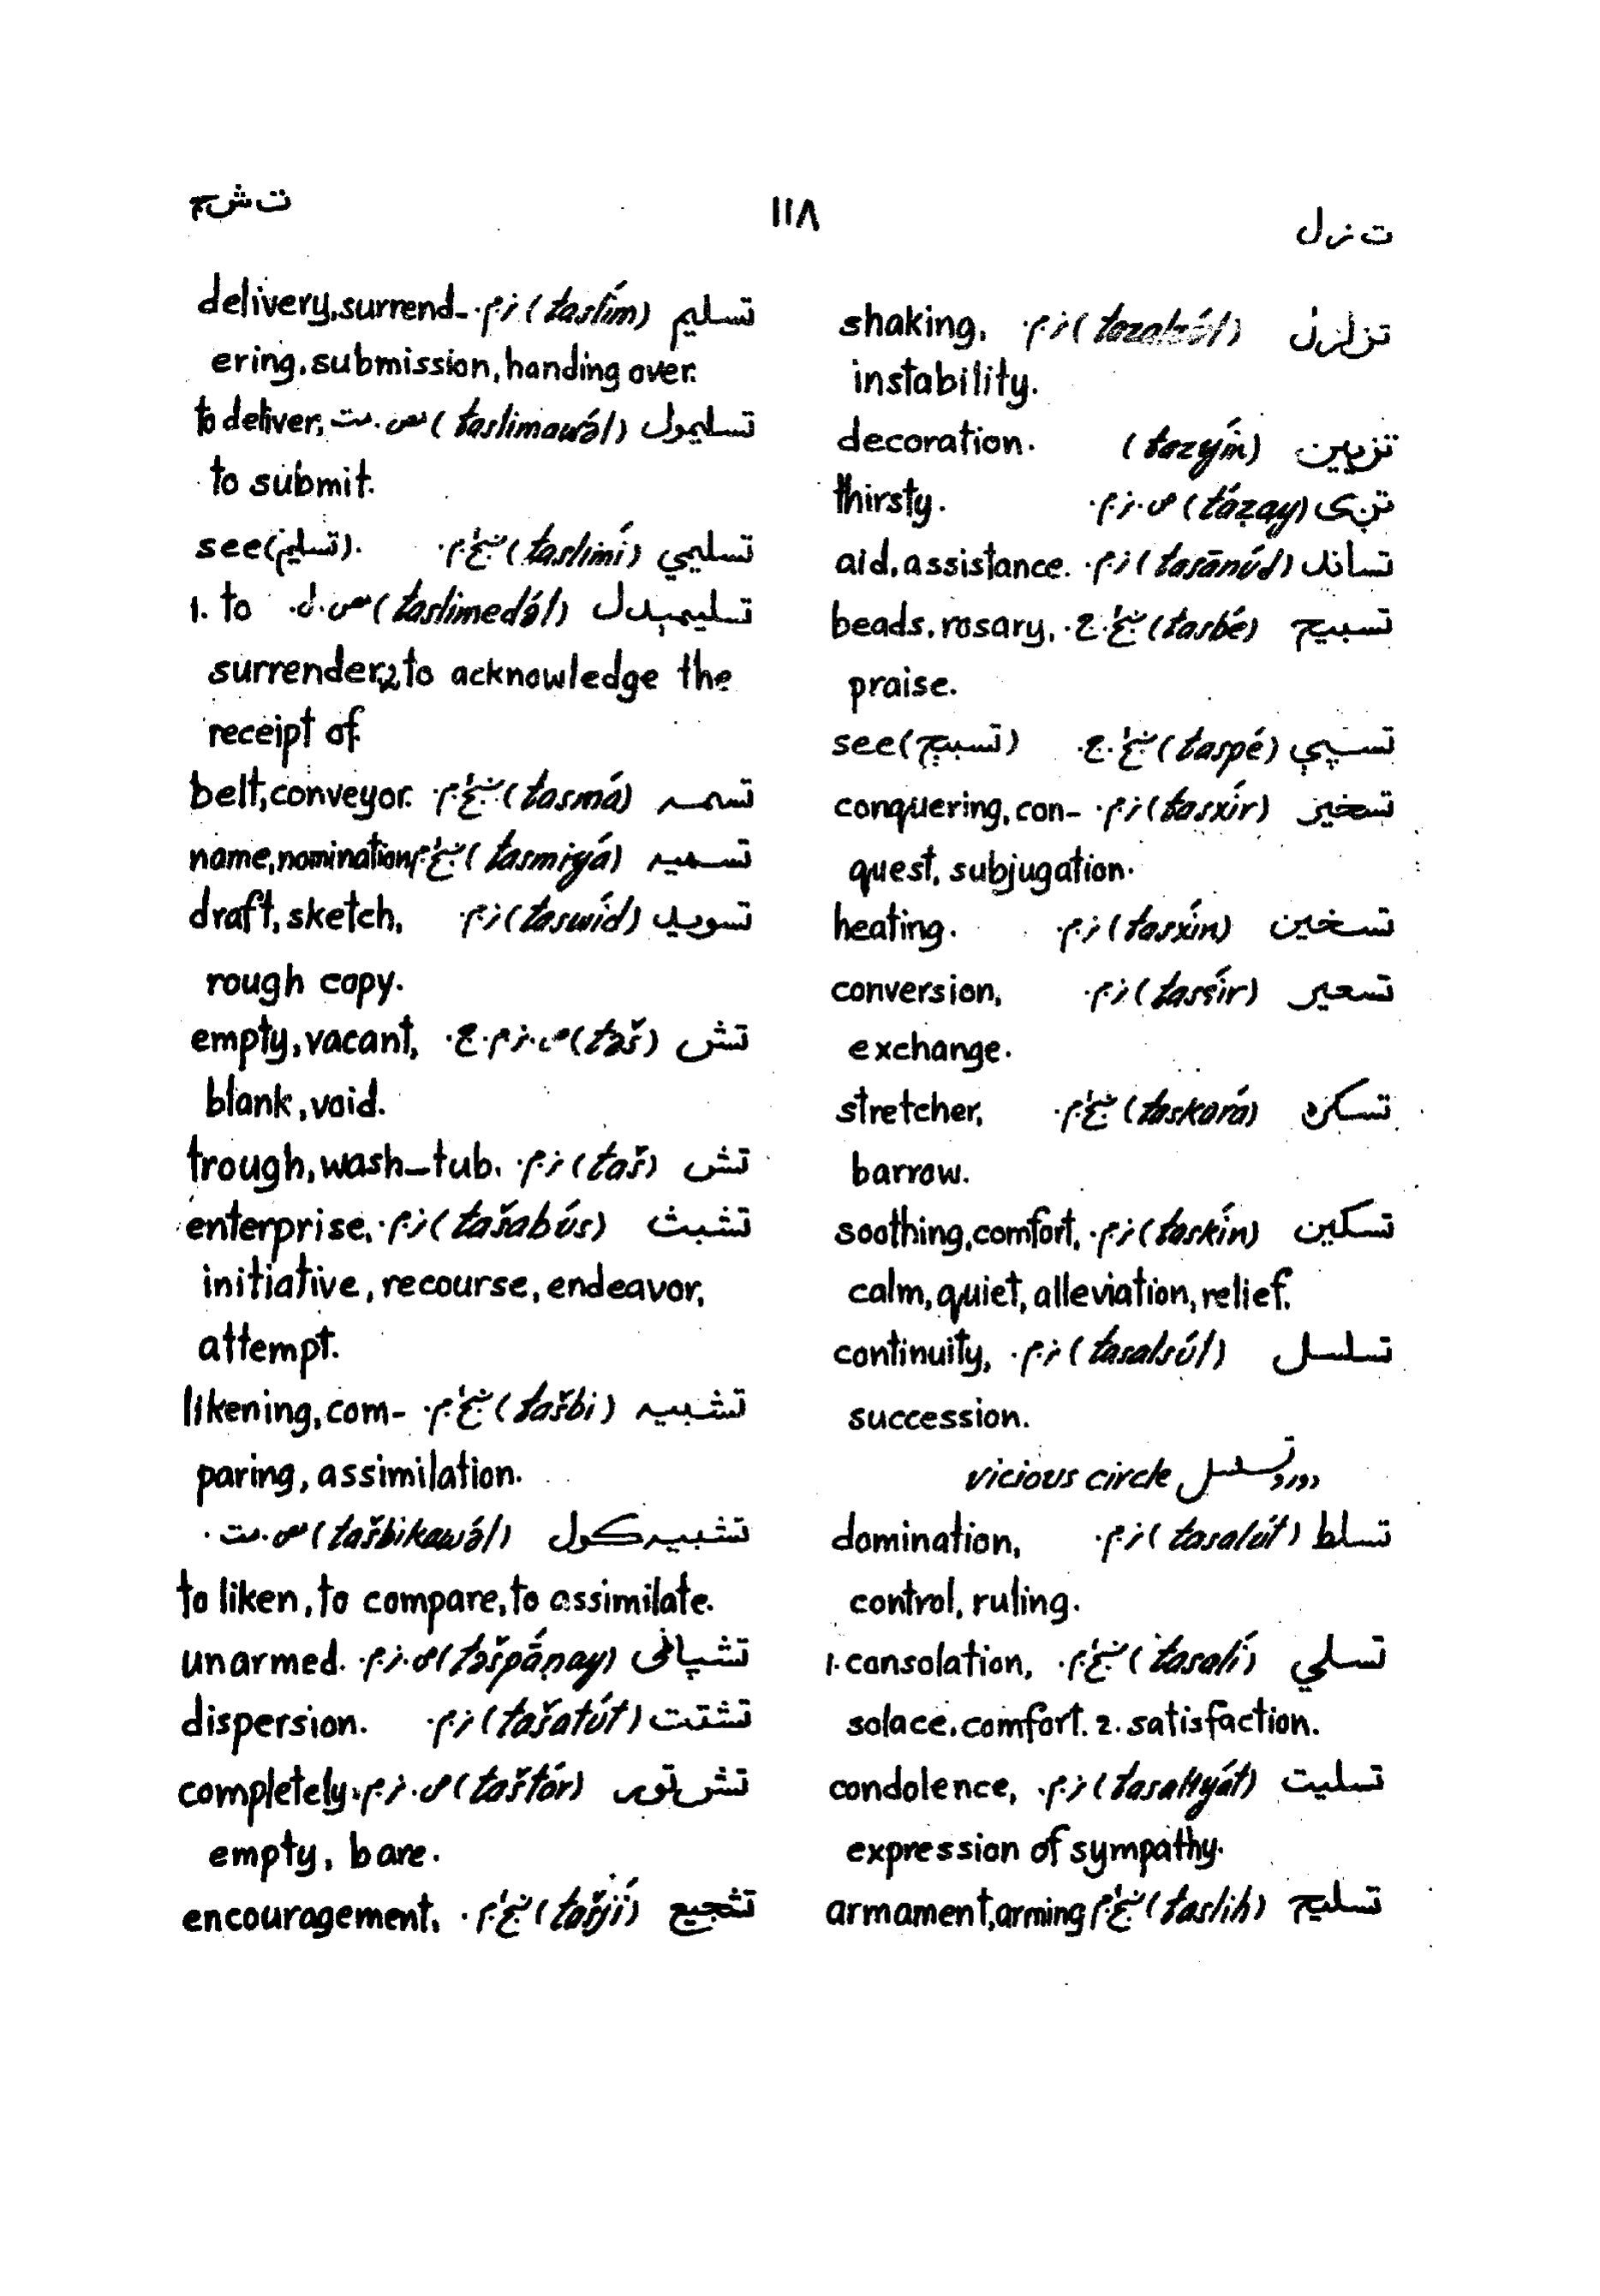 ت ز ل
۱۱۸
ت ش ج
تزلزل (tazalzúl) ن.م. shaking,
instability.
تزیین (tazyín) decoration.
تږی (táẓay) ص.ن.م. thirsty.
تساند (tasānúd) ن.م. aid, assistance.
تسبیح (tasbé) ښځ.ج. beads, rosary,
praise.
تسپې (taspé) ښځ.ج. see (تسبیح)
تسخیر (tasxír) ن.م. conquering, con-
quest, subjugation.
تسخین (tasxín) ن.م. heating.
تسعیر (tasír) ن.م. conversion,
exchange.
تسکره (taskará) ښځ.م. stretcher,
barrow.
تسکین (taskín) ن.م. soothing, comfort,
calm, quiet, alleviation, relief.
تسلسل (tasalsúl) ن.م. continuity,
succession.
دور و تسلسل vicious circle
تسلط (tasalút) ن.م. domination,
control, ruling.
تسلي (tasalí) ښځ.م. 1. consolation,
solace, comfort. 2. satisfaction.
تسلیت (tasaliyát) ن.م. condolence,
expression of sympathy.
تسلیح (taslih) ښځ.م. armament, arming
تسلیم (taslím) ن.م. delivery, surrend-
ering, submission, handing over.
تسلیمول (taslimawə́l) مص.مت. to deliver,
to submit.
تسلیمي (taslimí) ښځ.م. see (تسلیم).
تسلیمېدل (taslimedə́l) مص.ل. 1. to
surrender, 2. to acknowledge the
receipt of.
تسمه (tasmá) ښځ.م. belt, conveyor.
تسمیه (tasmiyá) ښځ.م. name, nomination
تسوید (taswíd) ن.م. draft, sketch,
rough copy.
تش (təš) ص.ن.م.ج. empty, vacant,
blank, void.
تش (taš) ن.م. trough, wash-tub.
تشبث (tašabús) ن.م. enterprise,
initiative, recourse, endeavor,
attempt.
تشبیه (tašbi) ښځ.م. likening, com-
paring, assimilation.
تشبیه کول (tašbikawə́l) مص.مت.
to liken, to compare, to assimilate.
تشپاڼی (təšpā́ṇay) ص.ن.م. unarmed.
تشتت (tašatút) ن.م. dispersion.
تش تور (taštór) ص.ن.م. completely
empty, bare.
تشجیع (tašjí) ښځ.م. encouragement,